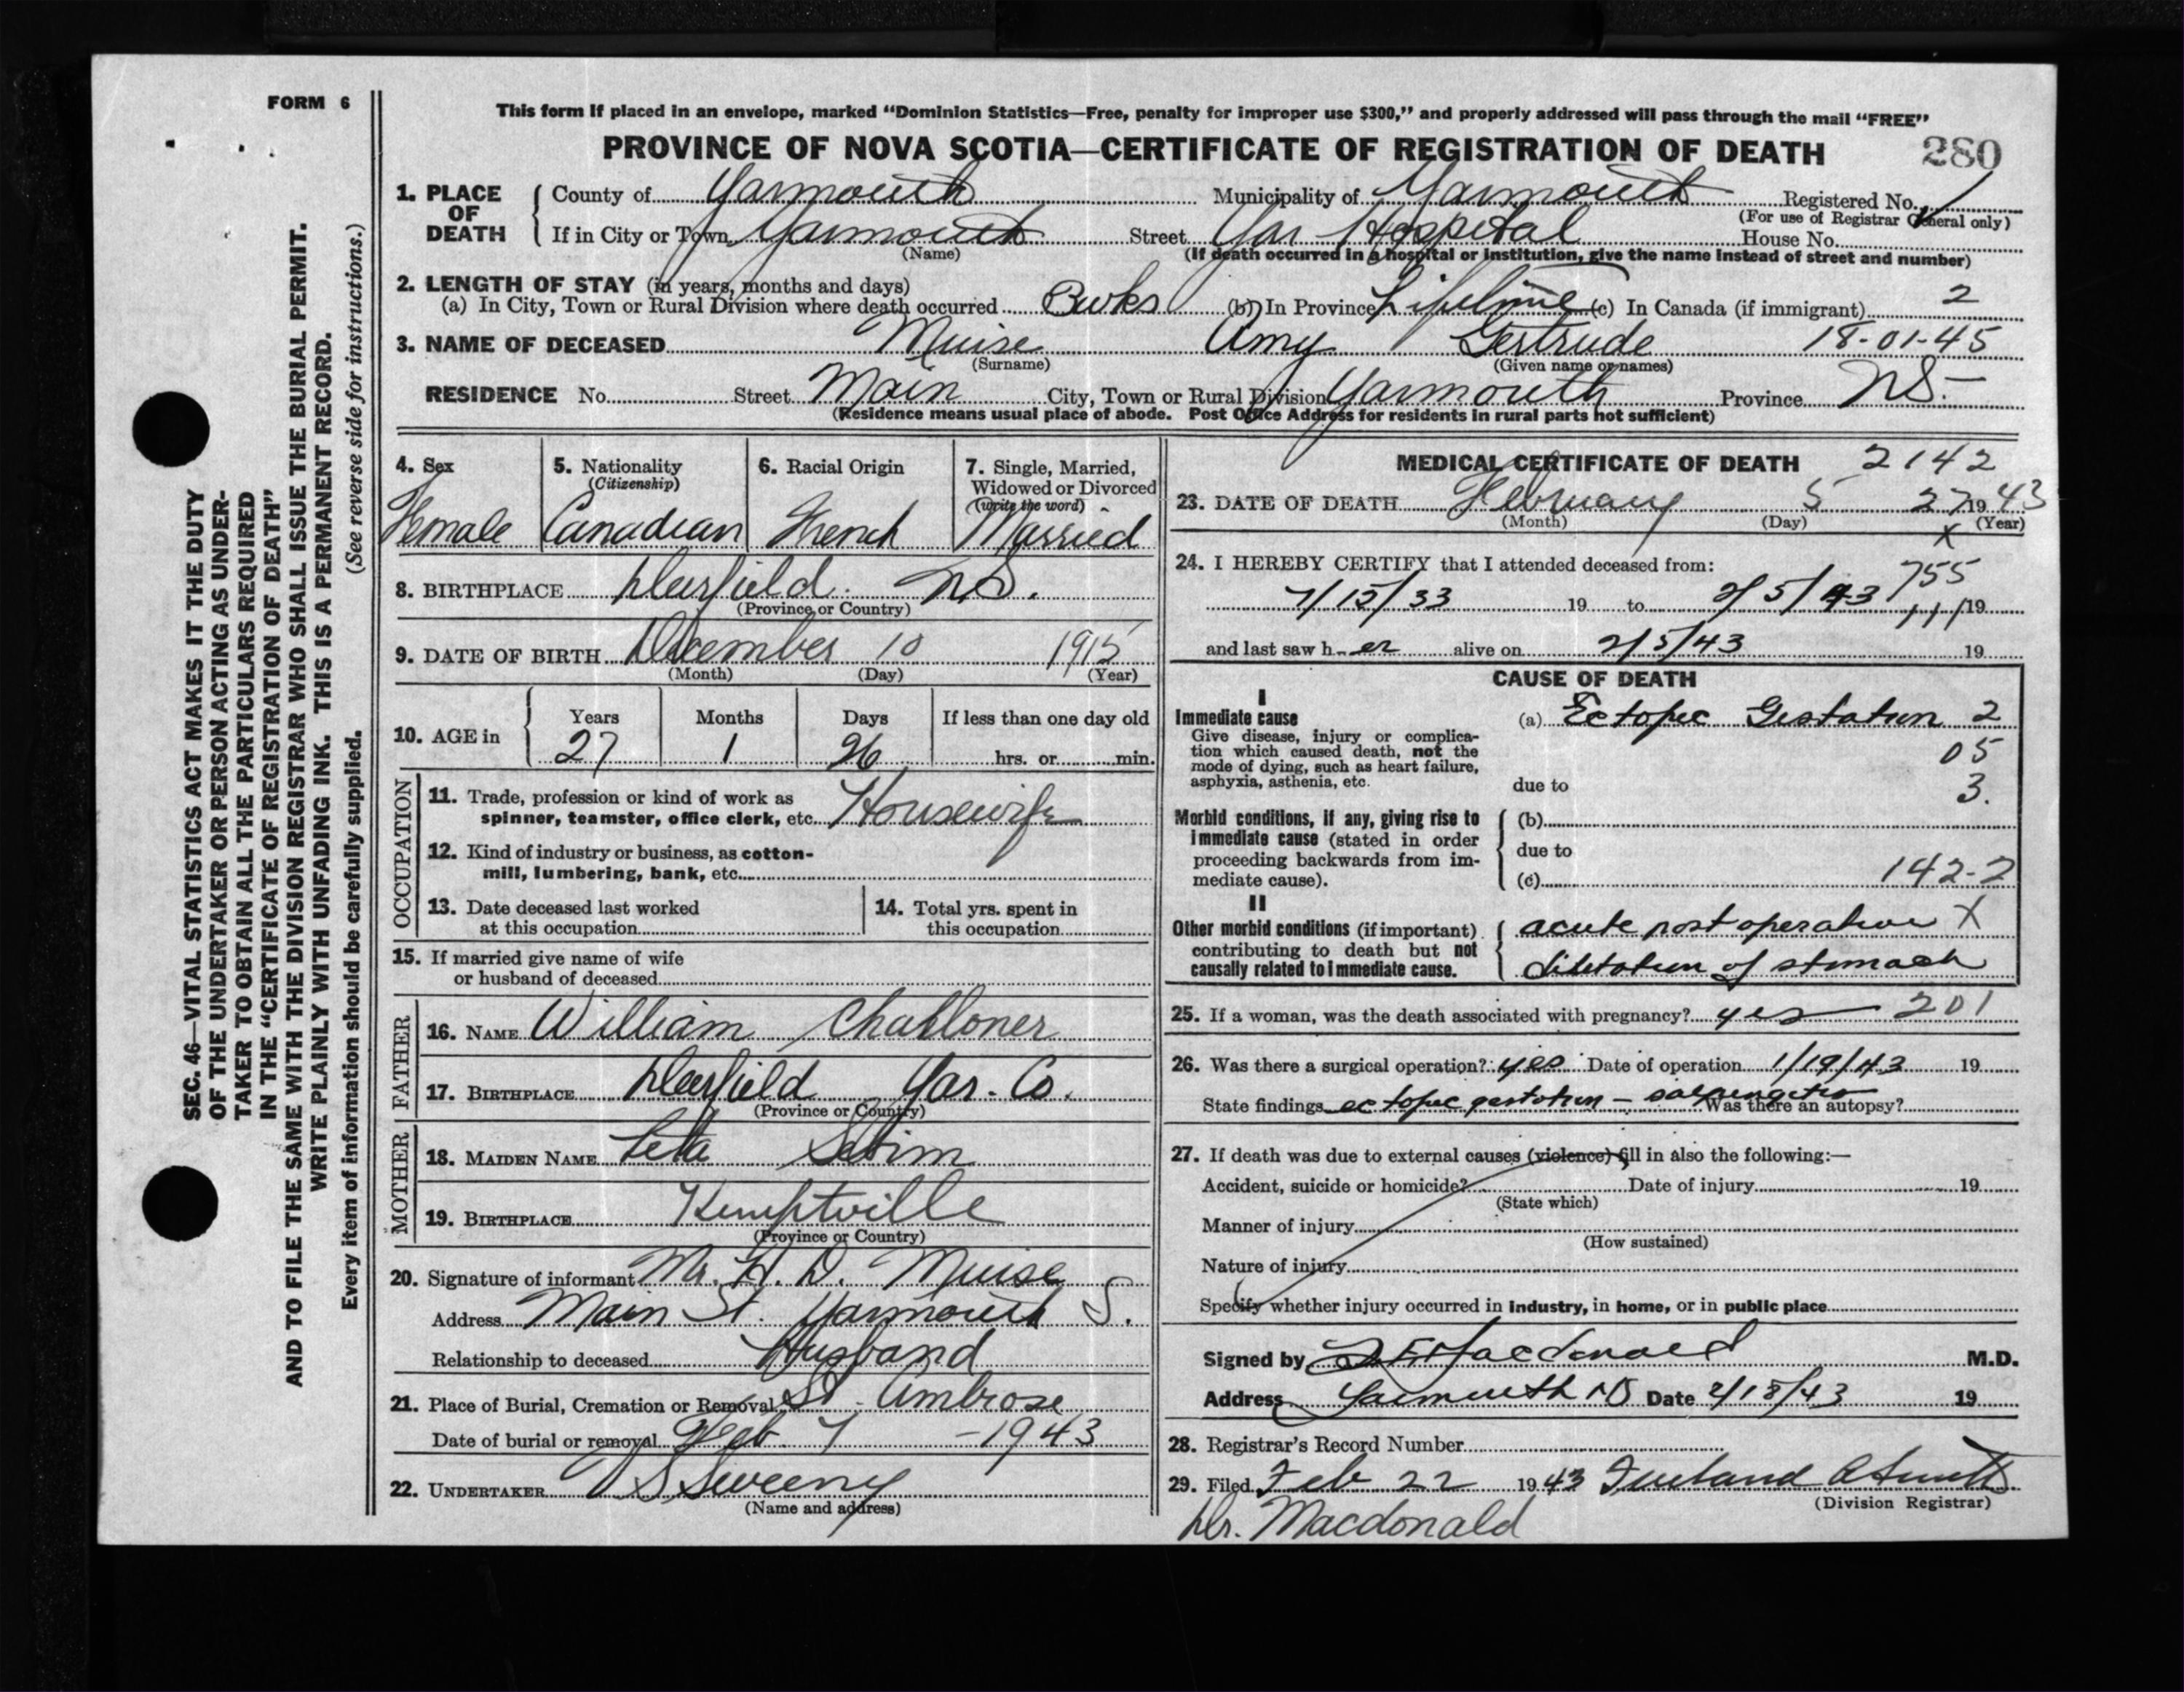 FORM 6
This form if placed in an envelope, marked "Dominion Statistics—Free, penalty for improper use $300," and properly addressed will pass through the mail "FREE"
PROVINCE OF NOVA SCOTIA—CERTIFICATE OF REGISTRATION OF DEATH 280
1. PLACE OF DEATH County of Yarmouth Municipality of Yarmouth Registered No.
(For use of Registrar General only)
If in City or Town Yarmouth Street Yar Hospital House No.
(Name) (If death occurred in a hospital or institution, give the name instead of street and number)
2. LENGTH OF STAY (in years, months and days)
(a) In City, Town or Rural Division where death occurred wks (b) In Province Lifetime (c) In Canada (if immigrant) 2
3. NAME OF DECEASED Muise Amy Gertrude 18-01-45
(Surname) (Given name or names)
RESIDENCE No. Street Main City, Town or Rural Division Yarmouth Province NS-
(Residence means usual place of abode. Post Office Address for residents in rural parts not sufficient)
4. Sex 5. Nationality (Citizenship) 6. Racial Origin 7. Single, Married, Widowed or Divorced (write the word)
Female Canadian French Married
8. BIRTHPLACE Deerfield. N.S.
(Province or Country)
9. DATE OF BIRTH December 10 1915
(Month) (Day) (Year)
10. AGE in Years Months Days If less than one day old
27 1 26 hrs. or min.
OCCUPATION
11. Trade, profession or kind of work as
spinner, teamster, office clerk, etc. Housewife
12. Kind of industry or business, as cotton-
mill, lumbering, bank, etc.
13. Date deceased last worked at this occupation 14. Total yrs. spent in this occupation
15. If married give name of wife
or husband of deceased
FATHER
16. NAME William Challoner
17. BIRTHPLACE Deerfield Yar. Co.
(Province or Country)
MOTHER
18. MAIDEN NAME Leta
19. BIRTHPLACE Kemptville
(Province or Country)
20. Signature of informant Mr. H. D. Muise
Address Main St. Yarmouth S.
Relationship to deceased Husband
21. Place of Burial, Cremation or Removal St. Ambrose
Date of burial or removal Feb. 7 - 1943
22. UNDERTAKER V S Sweeny
(Name and address)
MEDICAL CERTIFICATE OF DEATH 2142
23. DATE OF DEATH February 5 27 1943
(Month) (Day) (Year)
X
24. I HEREBY CERTIFY that I attended deceased from:
755
7/15/33 19 to 2/5/43 19
and last saw h er alive on 2/5/43 19
CAUSE OF DEATH
I
Immediate cause
Give disease, injury or complica-
tion which caused death, not the
mode of dying, such as heart failure,
asphyxia, asthenia, etc.
(a) Ectopic Gestation 2
05
due to 3.
Morbid conditions, if any, giving rise to
immediate cause (stated in order
proceeding backwards from im-
mediate cause).
(b)
due to
(c) 142-2
II
Other morbid conditions (if important)
contributing to death but not
causally related to immediate cause.
acute post operative X
dilatation of stomach
25. If a woman, was the death associated with pregnancy? yes 201
26. Was there a surgical operation? yes Date of operation 1/19/43 19
State findings ectopic gestation — Was there an autopsy?
27. If death was due to external causes (violence) fill in also the following:—
Accident, suicide or homicide? Date of injury 19
(State which)
Manner of injury
(How sustained)
Nature of injury
Specify whether injury occurred in industry, in home, or in public place
Signed by Macdonald M.D.
Address Yarmouth NS Date 2/18/43 19
28. Registrar's Record Number
29. Filed Feb 22 1943
(Division Registrar)
Dr. Macdonald
SEC. 46—VITAL STATISTICS ACT MAKES IT THE DUTY
OF THE UNDERTAKER OR PERSON ACTING AS UNDER-
TAKER TO OBTAIN ALL THE PARTICULARS REQUIRED
IN THE "CERTIFICATE OF REGISTRATION OF DEATH"
AND TO FILE THE SAME WITH THE DIVISION REGISTRAR WHO SHALL ISSUE THE BURIAL PERMIT.
WRITE PLAINLY WITH UNFADING INK. THIS IS A PERMANENT RECORD.
Every item of information should be carefully supplied. (See reverse side for instructions.)